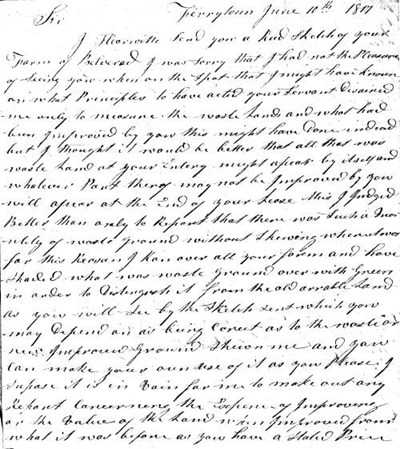 Ferrytown June 10th 1817
Sir
I Hearwith Send you a Rud Sketch of your
Farm of Belvered I was sorry that I had not the Pleasure
of Seing you when on the Spot that I might have known
on what Principles to have acted your Servant Desired
me only to measure the waste Lands and what had
been Improved by you this might have Done indeed
but I thought it would be better that all that was
waste Land at your Entery might apear by itself and
whatever Part therof may not be Improved by you
will apear at the End of your Lease this I Judged
Better than only to Report that there was Such a Quan
tity of waste ground without Shewing where it was
for this Reason I Ran over all your farm and have
Shaded what was waste ground over with Green
in order to Distingush it from the old arrable Land
as you will See by the Sketch Sent which you
may Depend on as being Corect as to the waste or
new Improved Ground Shewn me and you
Can make your own use of it as you Please I
Supose it is in Vain for me to make out any
Report Concerneng the Expence of Improveng
or the Value of the Land when Improved from
what it was before as you have a Stated Price